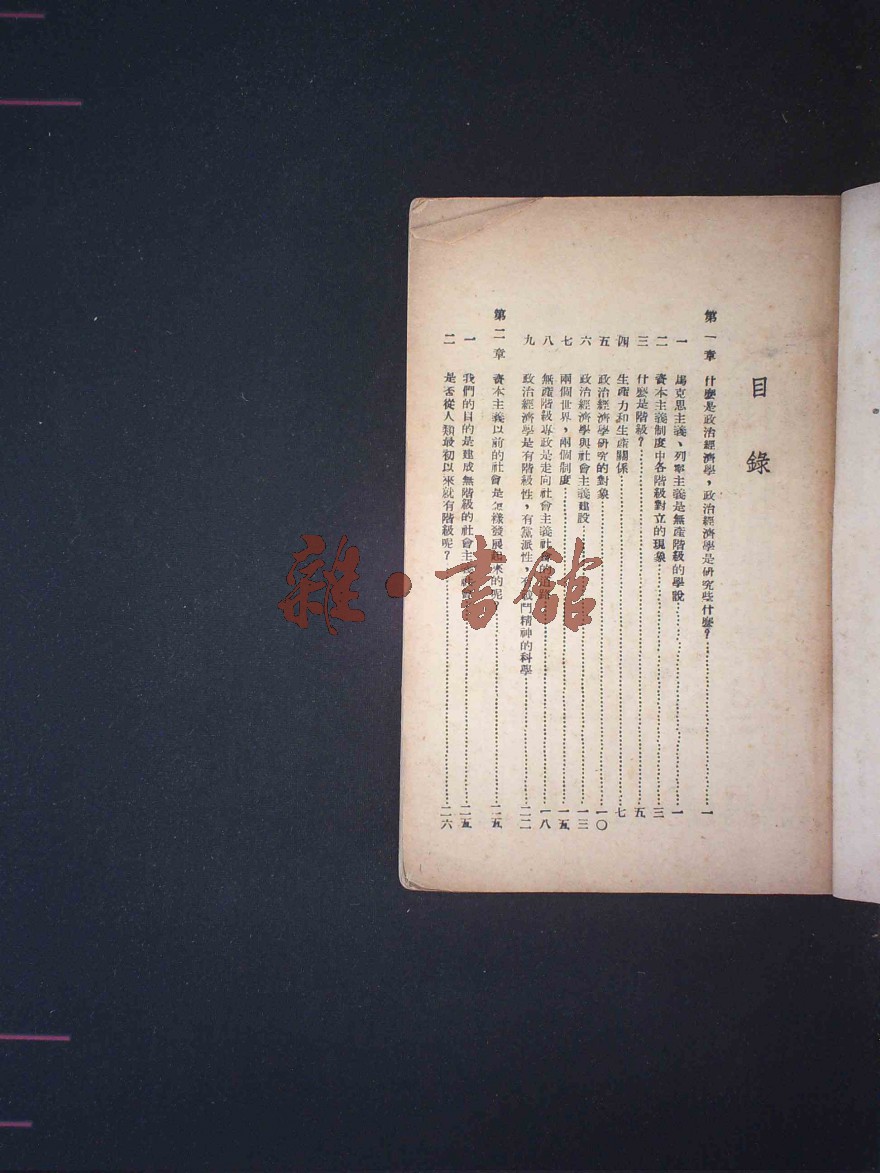 目錄
第一章 什麼是政治經濟學，政治經濟學是研究些什麼？……一
一 馬克思主義、列寧主義是無產階級的學說……一
二 資本主義制度中各階級對立的現象……三
三 什麼是階級？……五
四 生產力和生產關係……七
五 政治經濟學研究的對象……一〇
六 政治經濟學與社會主義建設……一三
七 兩個世界，兩個制度……一五
八 無產階級專政是走向社會主義社會的道路……一八
九 政治經濟學是有階級性，有黨派性，有戰鬥精神的科學……二二
第二章 資本主義以前的社會是怎樣發展起來的呢？……二五
一 我們的目的是建成無階級的社會主義社會……二五
二 是否從人知最初以來就有階級呢？……二六
雜·書館